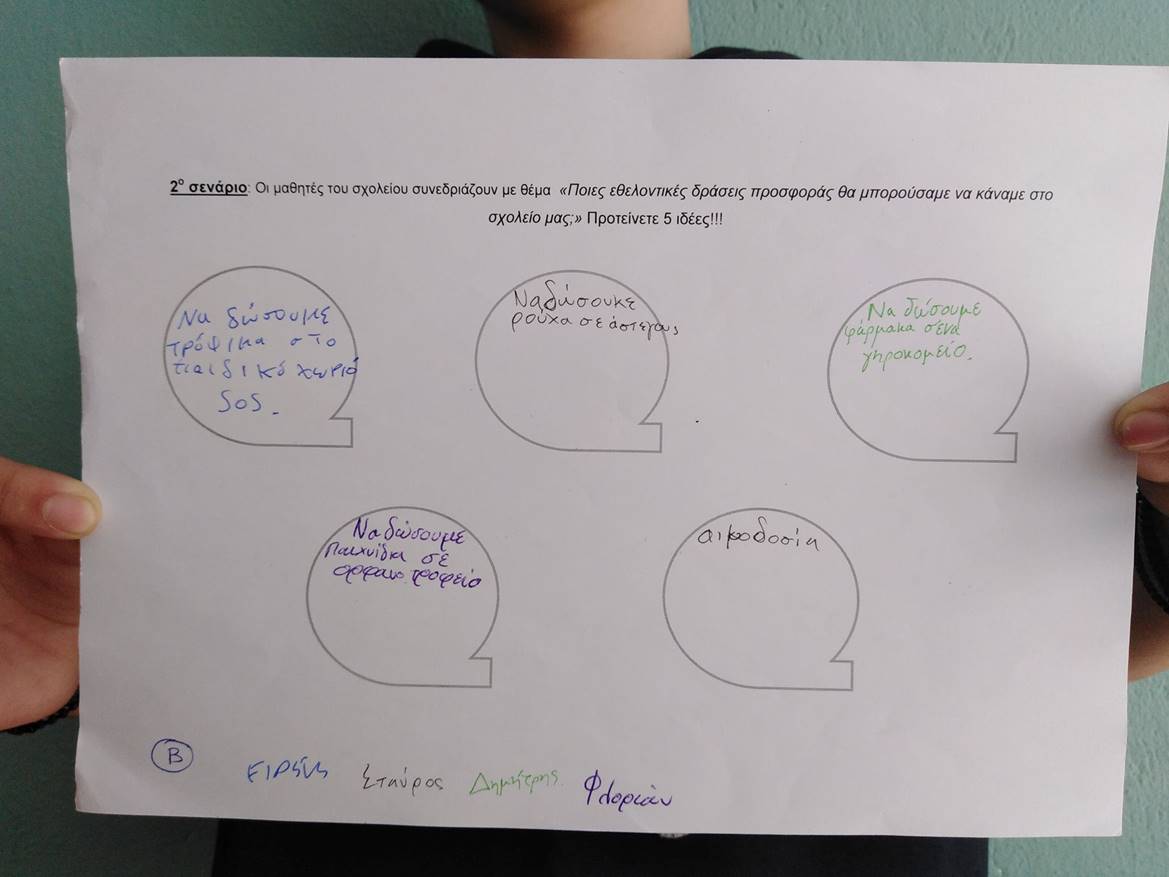 2ο σενάριο: Οι μαθητές του σχολείου συνεδριάζουν με θέμα «Ποιες εθελοντικές δράσεις προσφοράς θα μπορούσαμε να κάναμε στο
σχολείο μας;» Προτείνετε 5 ιδέες!!!
Να δώσουμε
τρόφιμα στο
παιδικό χωριό
SOS.
Να δώσουμε
ρούχα σε άστεγους
Να δώσουμε
φάρμακα σ ένα
γηροκομείο.
Να δώσουμε
Παιχνίδια σε
ορφανοτροφείο
αιμοδοσία
Β
Σταύρος Δημήτρης Φλοριάν